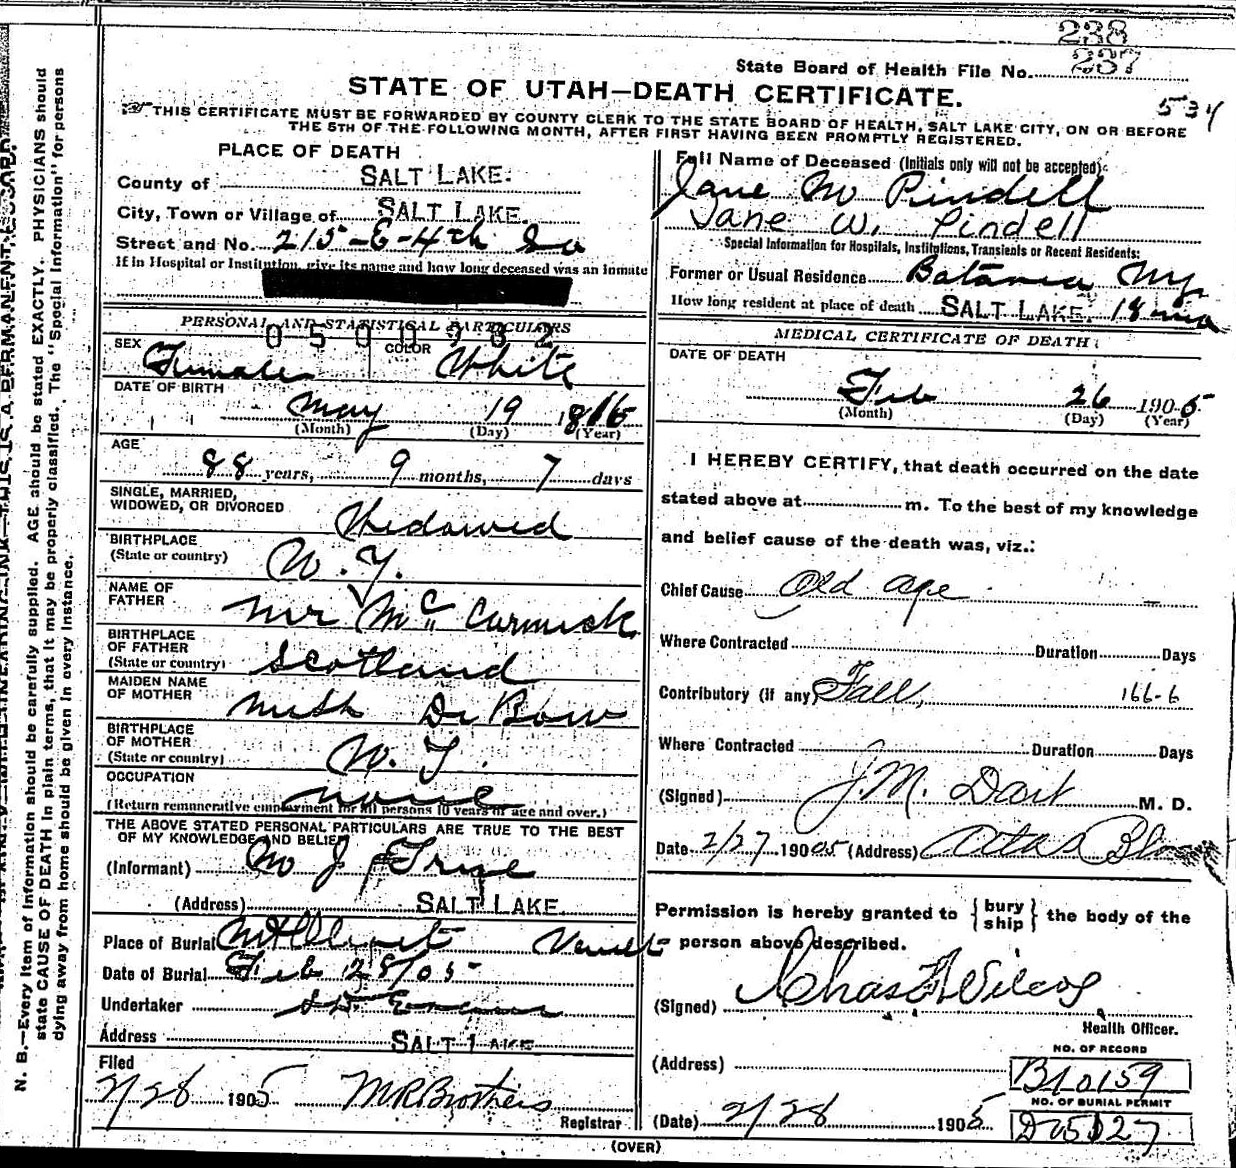 238
237
State Board of Health File No.
534
STATE OF UTAH—DEATH CERTIFICATE.
THIS CERTIFICATE MUST BE FORWARDED BY COUNTY CLERK TO THE STATE BOARD OF HEALTH, SALT LAKE CITY, ON OR BEFORE
THE 5TH OF THE FOLLOWING MONTH, AFTER FIRST HAVING BEEN PROMPTLY REGISTERED.
PLACE OF DEATH
County of SALT LAKE.
City, Town or Village of SALT LAKE.
Street and No. 215-E-4th So
If in Hospital or Institution, give its name and how long deceased was an inmate
PERSONAL AND STATISTICAL PARTICULARS
0500982
SEX Female COLOR White
DATE OF BIRTH
May 19 1816
(Month) (Day) (Year)
AGE
88 years, 9 months, 7 days
SINGLE, MARRIED,
WIDOWED, OR DIVORCED Widowed
BIRTHPLACE
(State or country) N.Y.
NAME OF
FATHER Mr McCormick
BIRTHPLACE
OF FATHER
(State or country) Scotland
MAIDEN NAME
OF MOTHER De Bow
BIRTHPLACE
OF MOTHER
(State or country) N.Y.
OCCUPATION
none
(Return remunerative employment for all persons 10 years of age and over.)
THE ABOVE STATED PERSONAL PARTICULARS ARE TRUE TO THE BEST
OF MY KNOWLEDGE AND BELIEF
(Informant) M J
(Address) SALT LAKE.
Place of Burial Mt Olivet Vault
Date of Burial Feb 28/05
Undertaker
Address SALT LAKE
Filed
2/28 1905 M R Brothers
Registrar
Full Name of Deceased (Initials only will not be accepted)
Jane W Pindell
Jane W. Pindell
Special Information for Hospitals, Institutions, Transients or Recent Residents:
Former or Usual Residence Batavia N.Y.
How long resident at place of death SALT LAKE. 18 mo
MEDICAL CERTIFICATE OF DEATH
DATE OF DEATH
Feb 26 1905
(Month) (Day) (Year)
I HEREBY CERTIFY, that death occurred on the date
stated above at m. To the best of my knowledge
and belief cause of the death was, viz.:
Chief Cause Old age
Where Contracted Duration Days
Contributory (if any) Fall, 166-6
Where Contracted Duration Days
(Signed) J.M. Dart M. D.
Date 2/27 1905 (Address) Atlas Block
Permission is hereby granted to {bury
ship} the body of the
person above described.
(Signed) Chas F Wilcox
Health Officer.
(Address)
NO. OF RECORD
B10159
NO. OF BURIAL PERMIT
D05127
(Date) 2/28 1905
(OVER)
N. B.—Every item of information should be carefully supplied. AGE should be stated EXACTLY. PHYSICIANS should
state CAUSE OF DEATH in plain terms, that it may be properly classified. The "Special Information" for persons
dying away from home should be given in every instance.